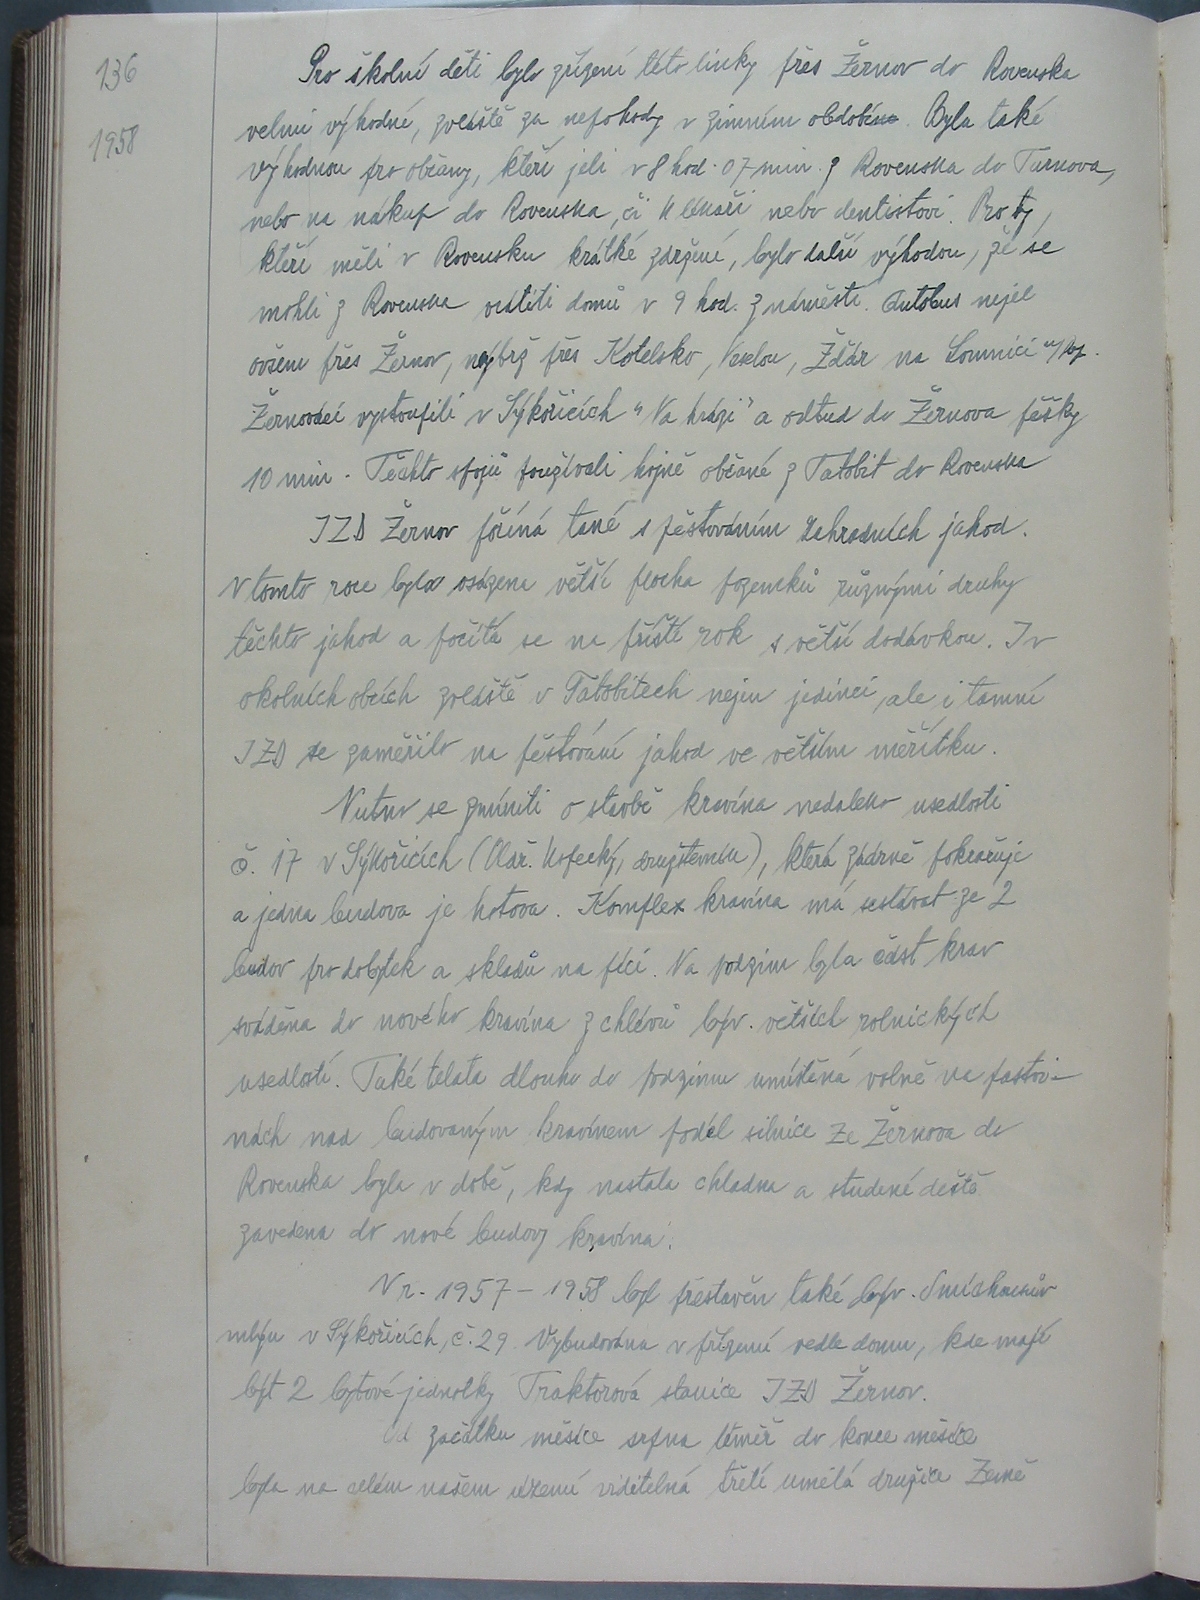 136
1958
Pro školní děti bylo zřízení této linky přes Žernov do Rovenska
velmi výhodné, zvláště za nepohody v zimním období. Byla také
výhodnou pro občany, kteří jeli v 8 hod. 07 min. z Rovenska do Turnova,
nebo na nákup do Rovenska, či k lékaři nebo dentistovi. Pro ty,
kteří měli v Rovensku krátké zdržení, bylo další výhodou, že se
mohli z Rovenska vrátiti domů v 9 hod. z náměstí. Autobus nejel
ovšem přes Žernov, nýbrž přes Kotelsko, Veselou, Ždár na Lomnici n/Pop.
Žernovácí vystoupili v Sýkořicích "Na hrázi" a odtud do Žernova pěšky
10 min. Těchto spojů používali hojně občané z Tatobit do Rovenska
JZD Žernov počíná také s pěstováním zahradních jahod.
V tomto roce byla osázena větší plocha pozemků různými druhy
těchto jahod a počítá se na příští rok s větší dodávkou. I v
okolních obcích zvláště v Tatobitech nejen jedinci, ale i tamní
JZD se zaměřilo na pěstování jahod ve větším měřítku.
Nutno se zmíniti o stavbě kravína nedaleko usedlosti
č. 17 v Sýkořicích (Vlad. Kopecký, družstevník), která zdárně pokračuje
a jedna budova je hotova. Komplex kravína má sestávat ze 2
budov pro dobytek a skladů na píci. Na podzim byla část krav
sváděna do nového kravína z chlévů býv. větších rolnických
usedlostí. Také telata dlouho do podzimu umístěná volně na pastvi-
nách nad budovaným kravínem podél silnice ze Žernova do
Rovenska byla v době, kdy nastala chladna a studené deště
zavedena do nové budovy kravína.
V r. 1957 – 1958 byl přestavěn také býv.
mlýn v Sýkořicích, č. 29. Vybudována v přízemí vedle domu, kde mají
být 2 bytové jednotky Traktorová stanice JZD Žernov.
Od začátku měsíce srpna téměř do konce měsíce
byla na celém našem území viditelná třetí umělá družice Země